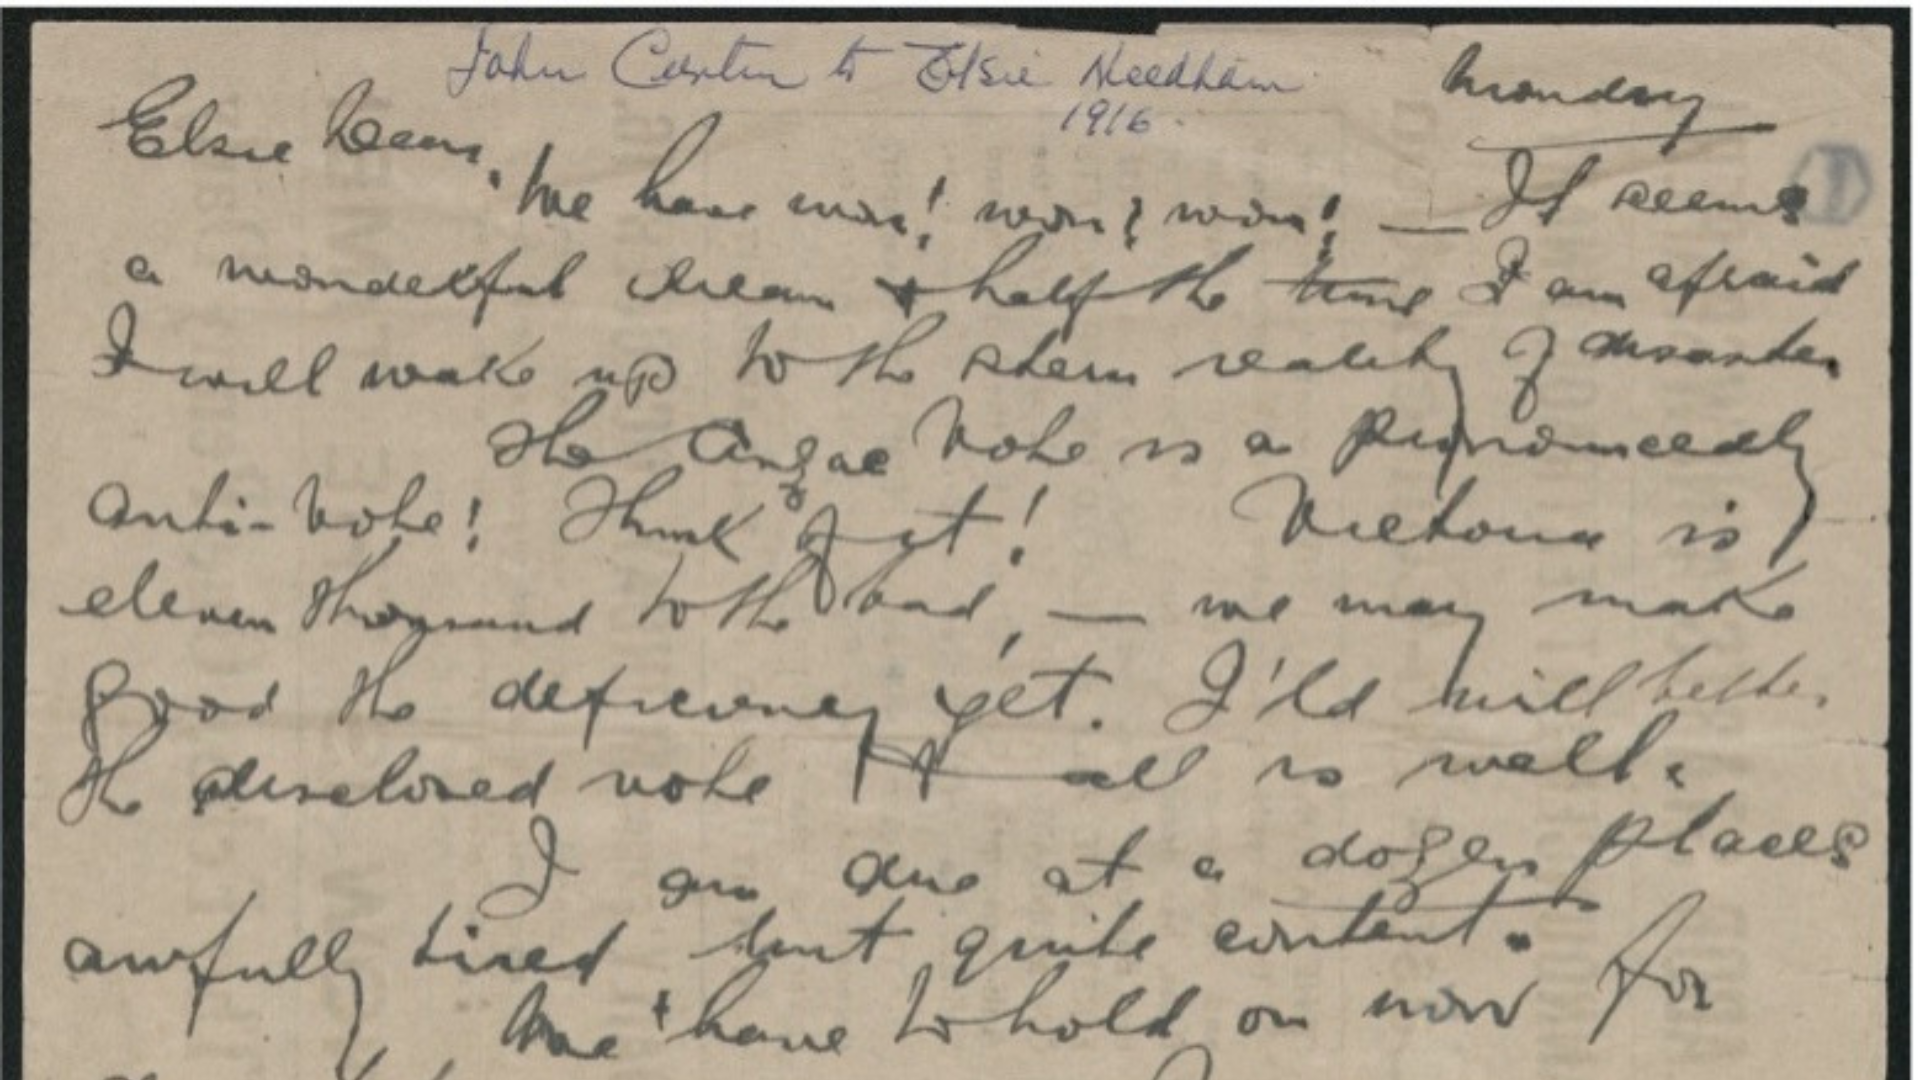 John Curtin to Elsie Needham
1916.
Monday
Elsie Dear,
We have won! won! won! — It seems
a wonderful dream & half the time I am afraid
I will wake up to the stern reality of disaster
The Anzac Vote is a pronouncedly
Anti-Vote! Think of it! Victoria is
eleven thousand to the bad, — we may make
good the deficiency yet. I'ld
the disclosed vote all is well.
I am due at a dozen places
awfully tired but quite content.
We have to hold on now for